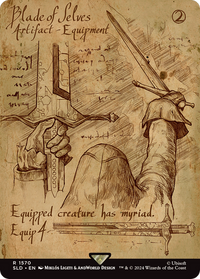 Blade of Selves
2
Artifact – Equipment
Equipped creature has myriad.
Equip 4
R 1570
SLD • EN MIKLÓS LIGETI & ANDWORLD DESIGN
© Ubisoft
™ & © 2024 Wizards of the Coast